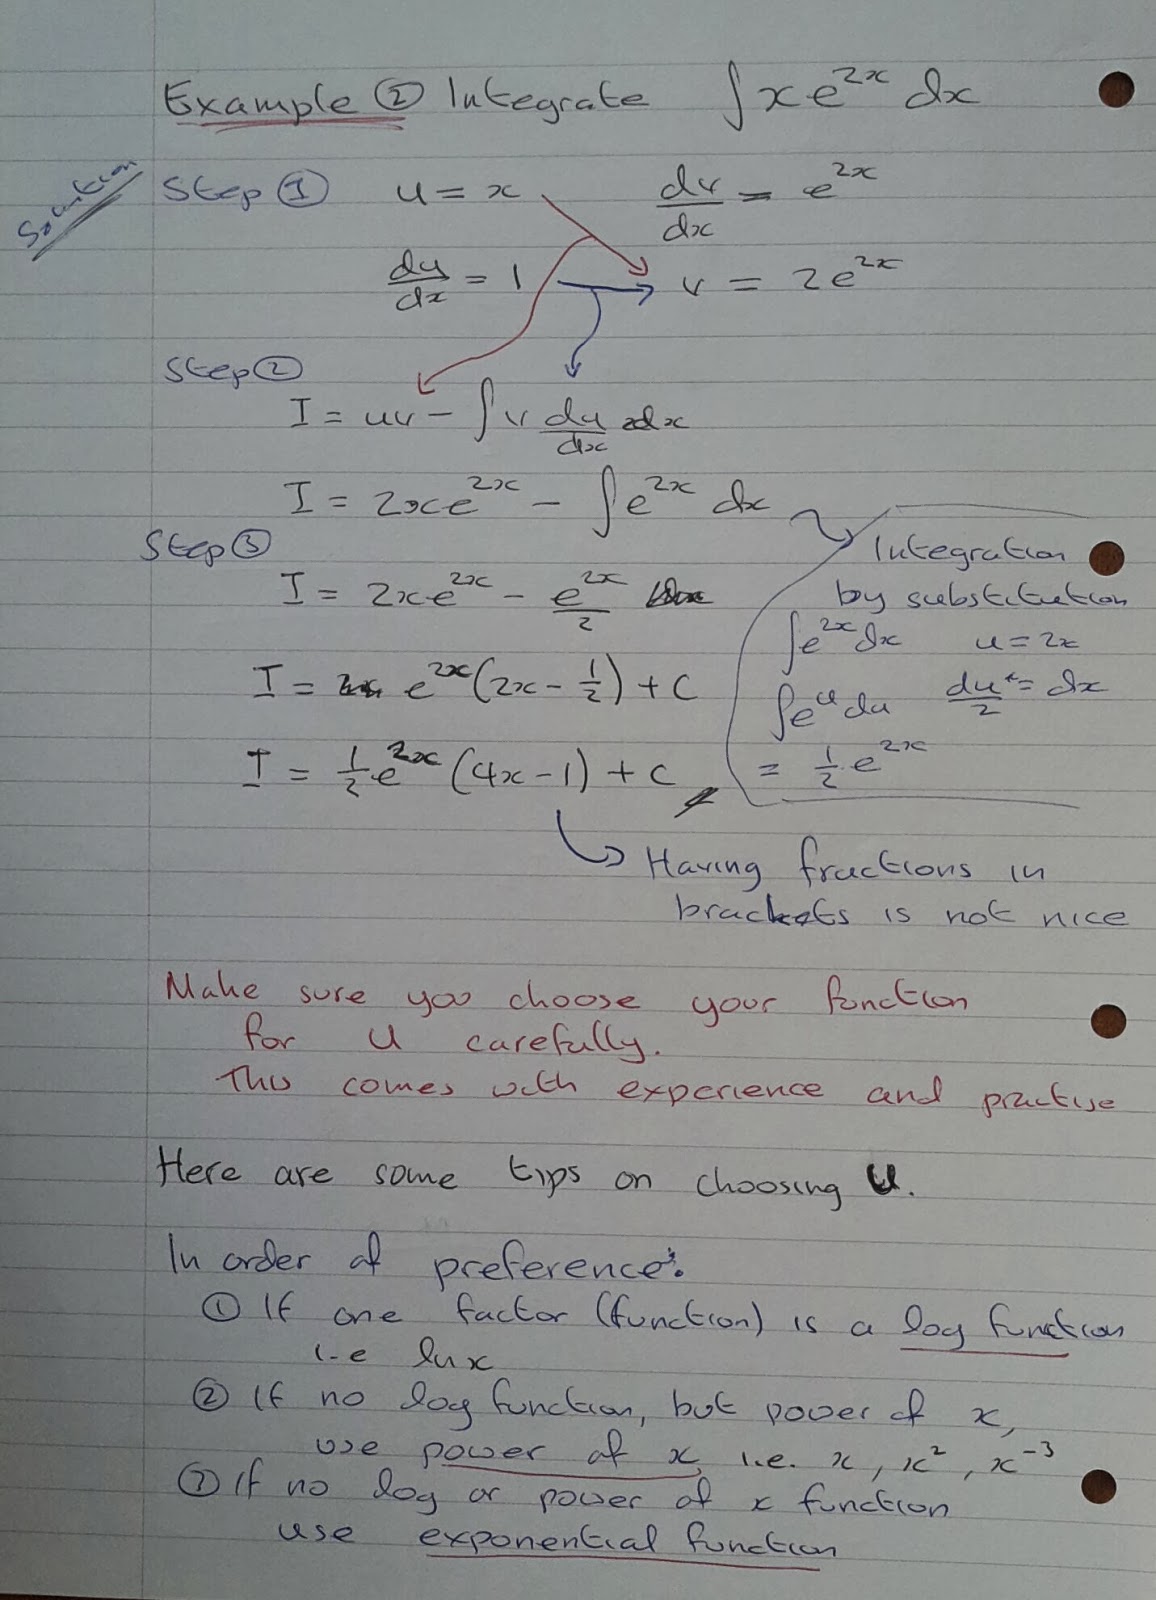 Example ② Integrate ∫xe^{2x} dx
Solution
Step ① u = x dv/dx = e^{2x}
du/dx = 1 v = 2e^{2x}
Step ②
I = uv - ∫v du/dx dx
I = 2xe^{2x} - ∫e^{2x} dx
Step ③
I = 2xe^{2x} - e^{2x}/2
I = e^{2x}(2x - 1/2) + C
I = 1/2 e^{2x} (4x - 1) + C
Integration
by substitution
∫e^{2x} dx u = 2x
∫e^u du du/2 = dx
= 1/2 e^{2x}
Having fractions in
brackets is not nice
Make sure you choose your function
for u carefully.
This comes with experience and practise
Here are some tips on choosing u.
In order of preference:
① If one factor (function) is a log function
i.e lnx
② If no log function, but power of x,
use power of x, i.e. x, x², x^{-3}
③ If no log or power of x function
use exponential function